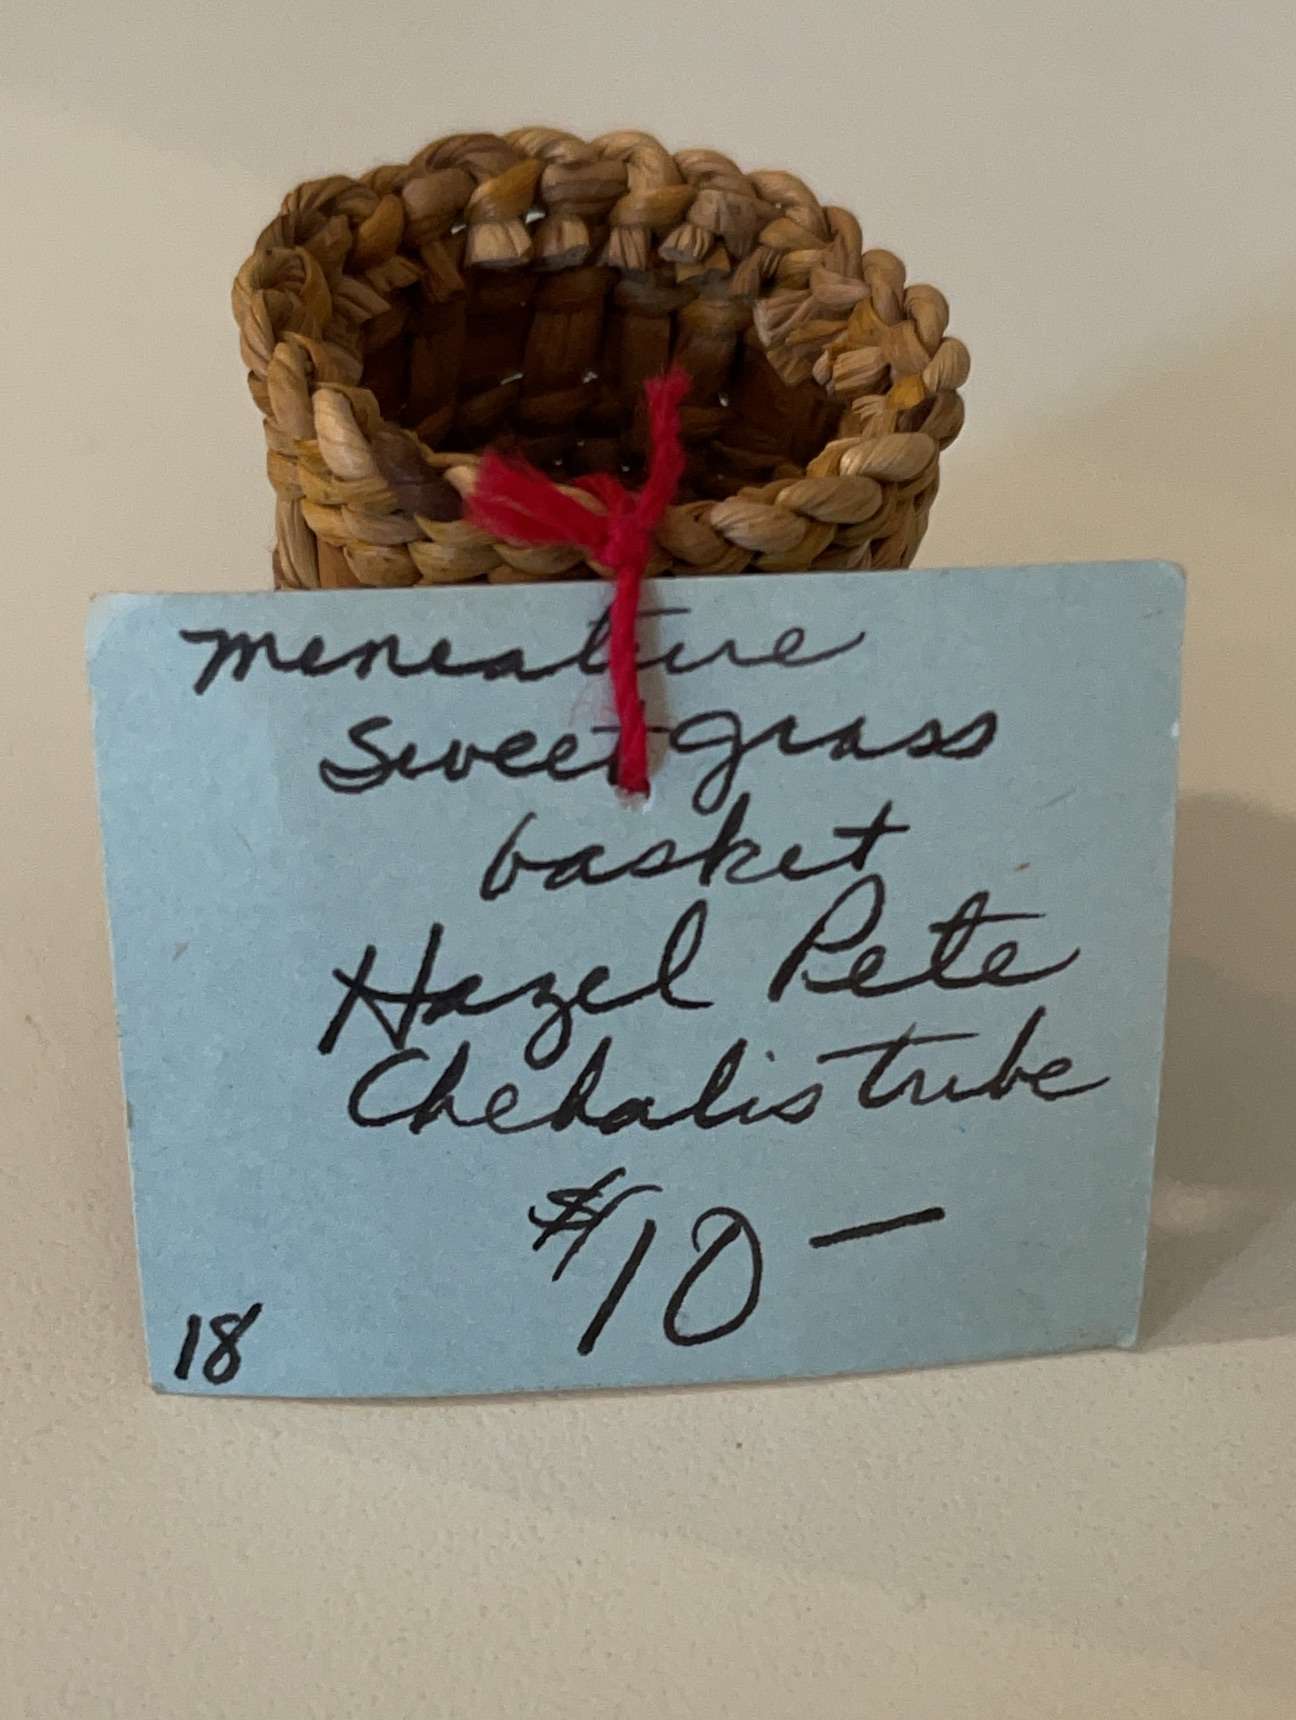 meneature
Sweet grass
basket
Hazel Pete
Chehalis tribe
$10 —
18